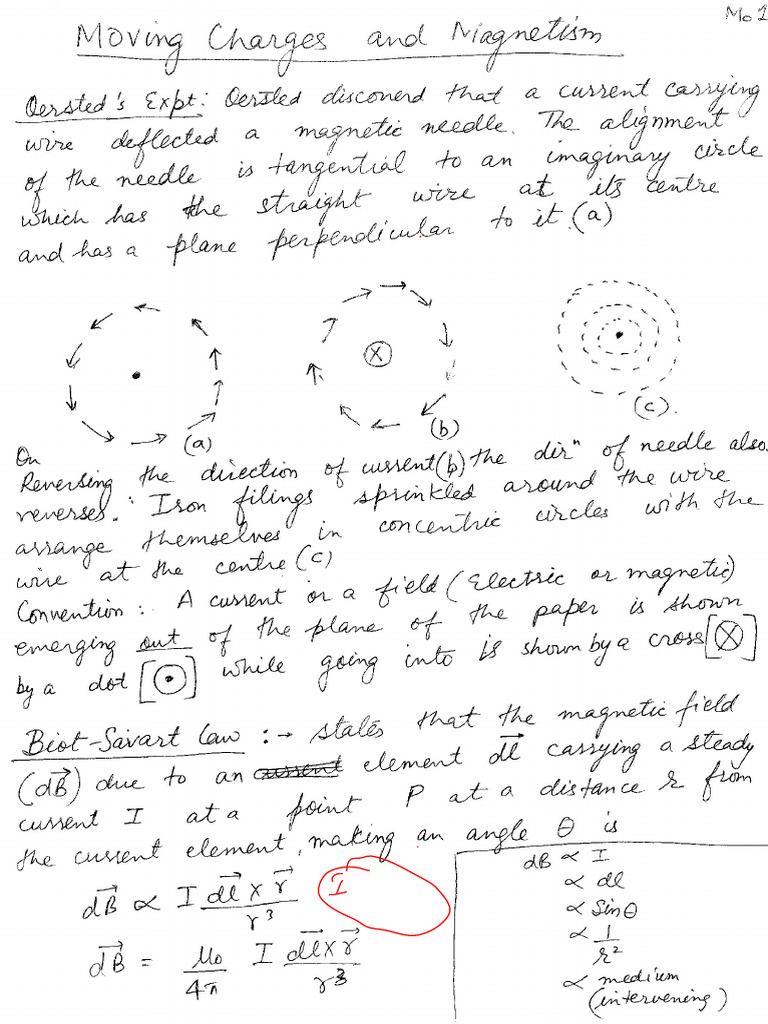 Mo 1
Moving Charges and Magnetism
Oersted's Expt: Oersted discoverd that a current carrying
wire deflected a magnetic needle. The alignment
of the needle is tangential to an imaginary circle
which has the straight wire at its centre
and has a plane perpendicular to it.(a)
X
(a)
(b)
(c).
On
Reversing the direction of current(b) the dirⁿ of needle also
reverses. Iron filings sprinkled around the wire
arrange themselves in concentric circles with the
wire at the centre (c)
Convention: A current or a field (Electric or magnetic)
emerging out of the plane of the paper is shown
by a dot [⊙] while going into is shown by a cross [⊗]
Biot-Savart Law :→ states that the magnetic field
(dB⃗) due to an current element dl⃗ carrying a steady
current I at a point P at a distance r from
the current element, making an angle θ is
dB⃗ ∝ I dl⃗ × r⃗ / r³
I
dB⃗ = μ₀ / 4π I dl⃗ × r⃗ / r³
dB ∝ I
∝ dl
∝ Sinθ
∝ 1 / r²
∝ medium
(intervening)